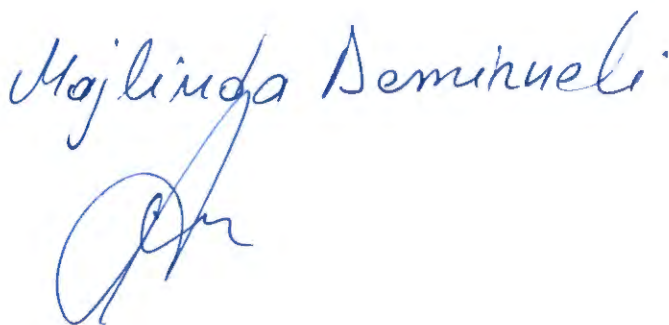 Majlinda Demirueli